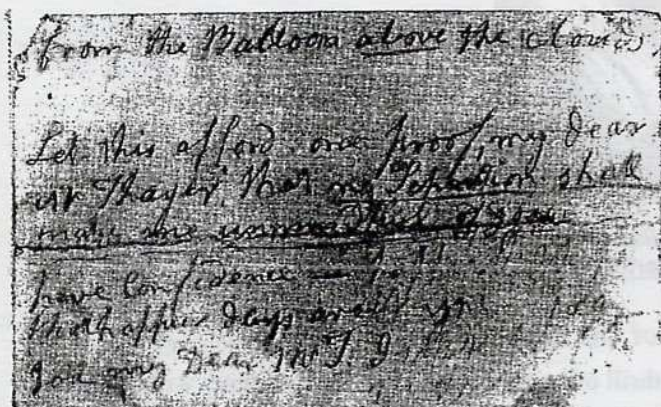 from the Balloon above the clouds,
Let this afford one proof, my dear
Mr Thayer, that no Separation shall
make me unmindful of you
have confidence
that happier days await you
you my Dear Mr T. I